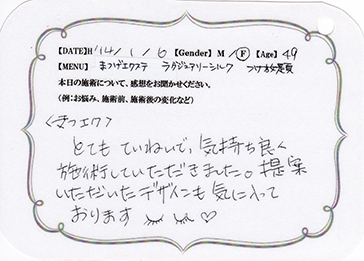 【DATE】H '14/1/6 【Gender】M/F 【Age】49
【MENU】まつげエクステ ラグジュアリーシルク つけ放題
本日の施術について、感想をお聞かせください。
(例:お悩み、施術前、施術後の変化など)
<まつエク>
とてもていねいで、気持ち良く
施術していただきました。提案
いただいたデザインも気に入って
おります ♡